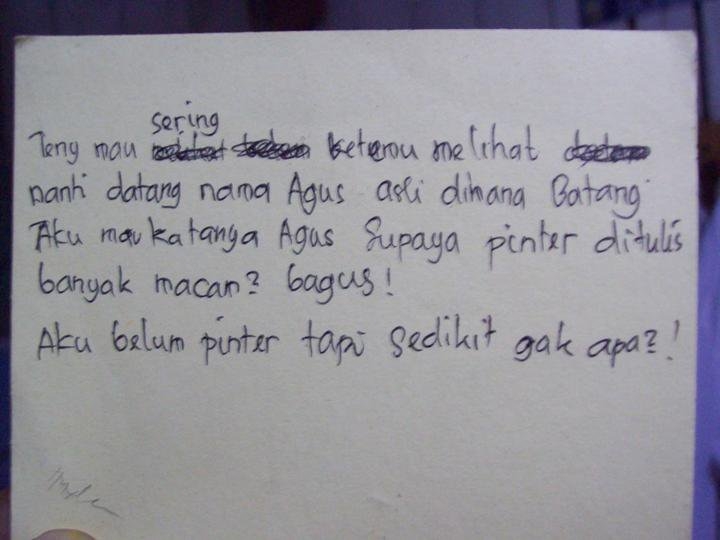 sering
Teny mau ketemu melihat
nanti datang nama Agus asli dimana Batang
Aku mau katanya Agus Supaya pinter ditulis
banyak macam? bagus!
Aku belum pinter tapi sedikit gak apa?!